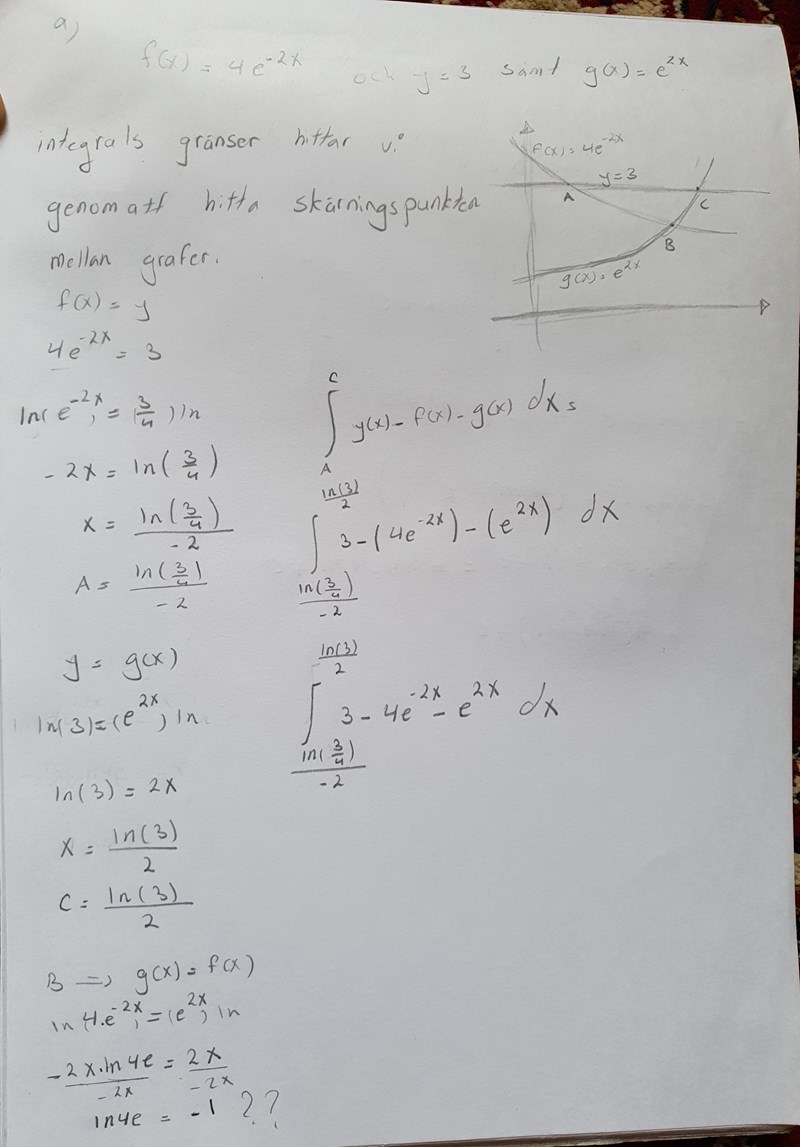 a)
f(x) = 4e^{-2x} och y = 3 samt g(x) = e^{2x}
integrals gränser hittar vi
genom att hitta skärningspunkten
mellan grafer.
f(x) = y
4e^{-2x} = 3
ln(e^{-2x}) = (3/4) ln
-2x = ln(3/4)
x = ln(3/4)/-2
A = ln(3/4)/-2
y = g(x)
ln(3) = (e^{2x}) ln
ln(3) = 2x
x = ln(3)/2
C = ln(3)/2
B => g(x) = f(x)
ln(4·e^{-2x}) = (e^{2x}) ln
-2x·ln4e/-2x = 2x/-2x
ln4e = -1 ??
f(x) = 4e^{-2x}
y = 3
A
C
B
g(x) = e^{2x}
∫_A^C y(x) - f(x) - g(x) dx =
∫_{ln(3/4)/-2}^{ln(3)/2} 3 - (4e^{-2x}) - (e^{2x}) dx
∫_{ln(3/4)/-2}^{ln(3)/2} 3 - 4e^{-2x} - e^{2x} dx